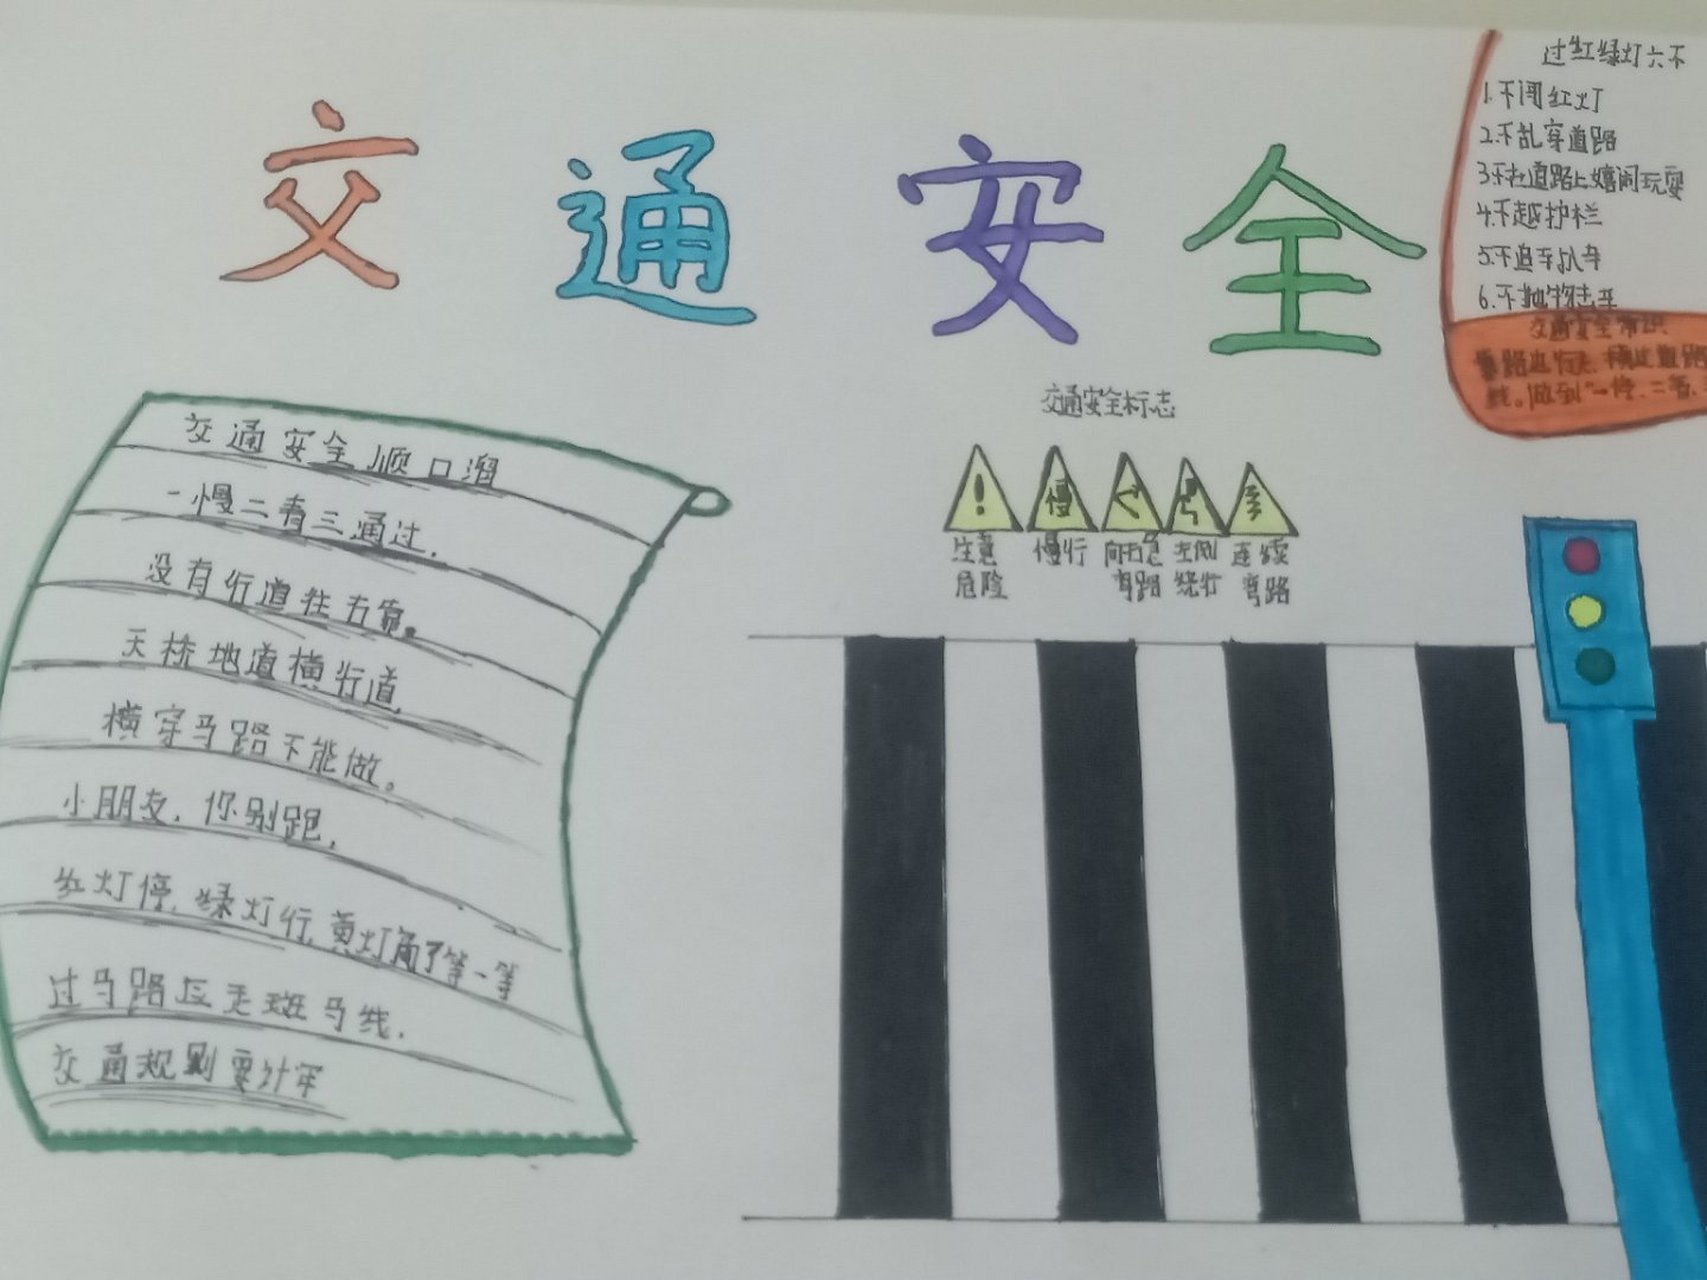 交通安全
过红绿灯六不
1.不闯红灯
2.不乱穿道路
3.不在道路上嬉闹玩耍
4.不越护栏
5.不追车扒车
6.不抛物击车
交通安全常识
交通安全标志
慢
注意危险
慢行
向右急弯路
左侧绕行
连续弯路
交通安全顺口溜
一慢二看三通过.
没有行道往右靠。
天桥地道横行道
横穿马路不能做。
小朋友.你别跑.
红灯停.绿灯行.黄灯亮了等一等
过马路应走斑马线.
交通规则要计牢